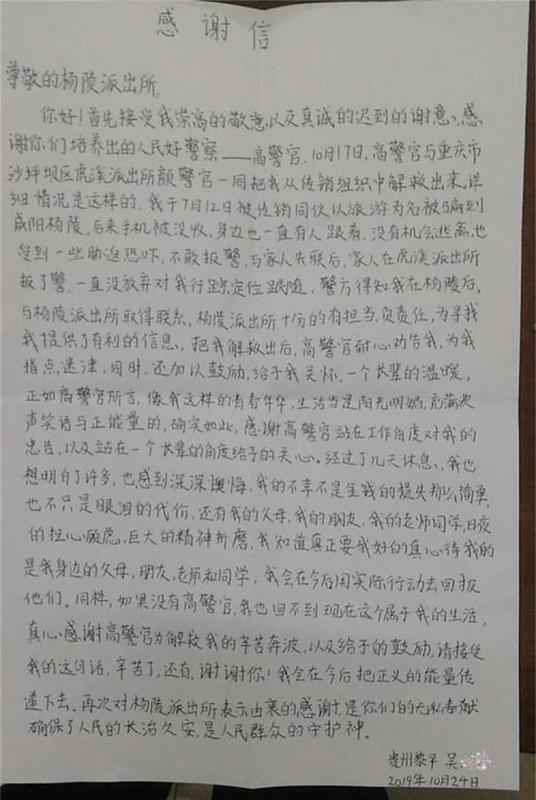 感谢信
尊敬的杨陵派出所
你好!首先接受我崇高的敬意以及真诚的迟到的谢意,感
谢你们培养出的人民好警察——高警官.10月17日,高警官与重庆市
沙坪坝区虎溪派出所颜警官一同把我从传销组织中解救出来,详
细情况是这样的,我于7月12日被传销同伙以旅游为名被骗到
咸阳杨陵,后来手机被没收,身边也一直有人跟着,没有机会逃离,也
受到一些胁迫恐吓,不敢报警,与家人失联后,家人在虎溪派出所
报了警,一直没放弃对我行踪定位跟随,警方得知我在杨陵后,
与杨陵派出所取得联系,杨陵派出所十分的有担当,负责任,为寻找
我提供了有利的信息,把我解救出后,高警官耐心劝告我,为我
指点迷津,同时,还加以鼓励,给予我关怀,一个长辈的温暖,
正如高警官所言,像我这样的有春年华,生活当是阳光明媚,充满欢
声笑语与正能量的,确实如此,感谢高警官站在工作角度对我的
忠告,以及站在一个长辈的角度给予的关心。经过了几天休息,我也
想明白了许多,也感到深深懊悔,我的不幸不是金钱的损失那么简单,
也不只是眼泪的代价,还有我的父母,我的朋友,我的老师同学,日夜
的担心顾虑,巨大的精神折磨,我知道真正要我好的真心待我的
是我身边的父母,朋友,老师和同学,我会在今后用实际行动去回报
他们。同样,如果没有高警官,我也回不到现在这个属于我的生活,
真心感谢高警官为解救我的辛苦奔波,以及给予的鼓励,请接受
我的这句话,辛苦了,还有,谢谢你!我会在今后把正义的能量传
递下去.再次对杨陵派出所表示由衷的感谢,是你们的无私奉献
确保了人民的长治久安,是人民群众的守护神.
贵州黎平 吴
2019年10月24日